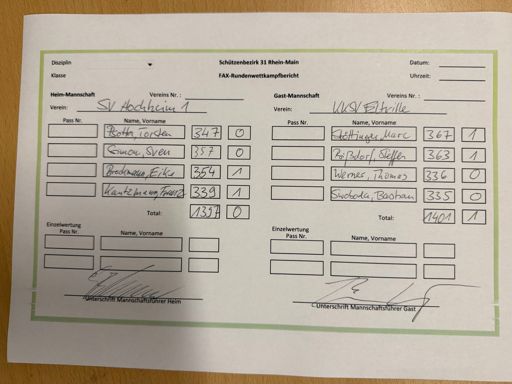 Disziplin Schützenbezirk 31 Rhein-Main Datum:
Klasse FAX-Rundenwettkampfbericht Uhrzeit:
Heim-Mannschaft Vereins Nr. : Gast-Mannschaft Vereins Nr. :
Verein: SV Hochheim 1 Verein: Eltville
Pass Nr. Name, Vorname Pass Nr. Name, Vorname
Torsten 347 0 Marc 367 1
Simon, Sven 357 0 Steffen 363 1
Eike 354 1 Werner, Thomas 336 0
339 1 Swoboda, Bastian 335 0
Total: 1397 0 Total: 1401 1
Einzelwertung Einzelwertung
Pass Nr. Name, Vorname Pass Nr. Name, Vorname
Unterschrift Mannschaftsführer Heim Unterschrift Mannschaftsführer Gast